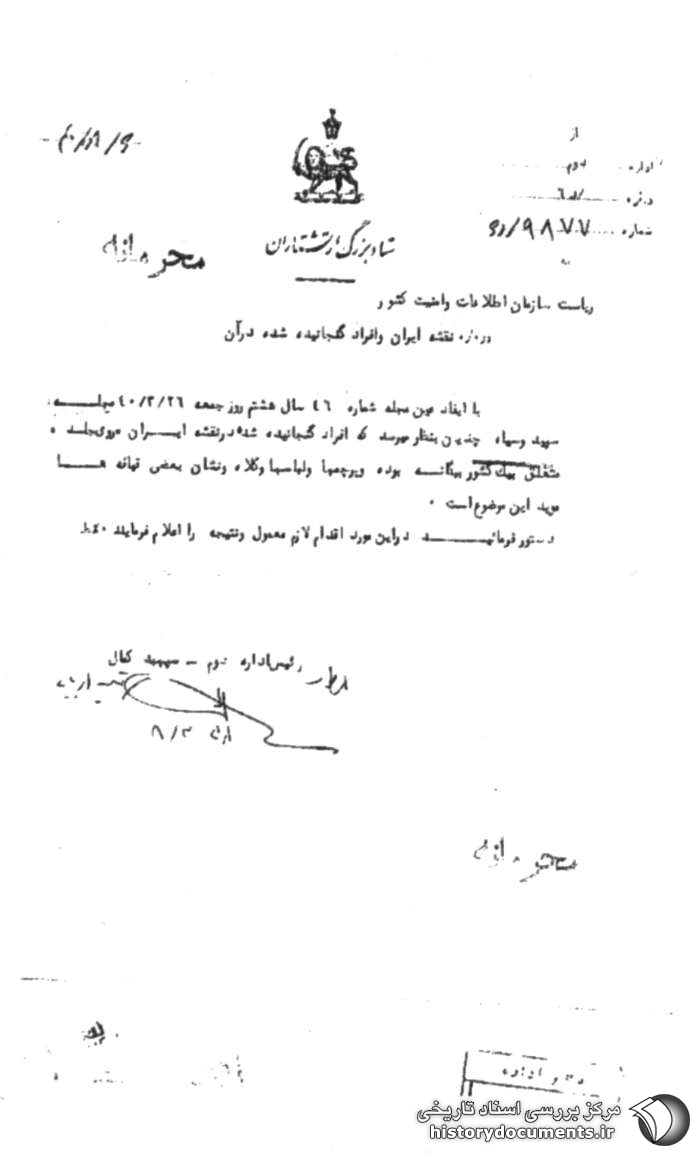 از
اداره دوم
دایره
شماره ۹۸۷۷
به
ستاد بزرگ ارتشتاران
محرمانه
ریاست سازمان اطلاعات وامنیت کشور
درباره نقشه ایران وافراد گنجانیده شده درآن
با ایفاد عین مجله شماره ٤٦ سال هشتم روز جمعه ٤٠/٢/٢٦ مجلــه
سپید وسیاه چنین بنظر میرسد که افراد گنجانیده شده درنقشه ایــران روی جلد
متعلق بیك کشور بیگانــه بوده وپرچمها ولباسها وکلاه ونشان بعض قیافه هــا
موید این موضوع است ۰
دستور فرمائیــــد دراین مورد اقدام لازم معمول ونتیجه را اعلام فرمایند
رئیس اداره دوم ــ سپهبد کمال
۸/۳
محرمانه
مرکز بررسی اسناد تاریخی
historydocuments.ir